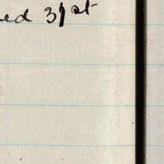 ed 31st